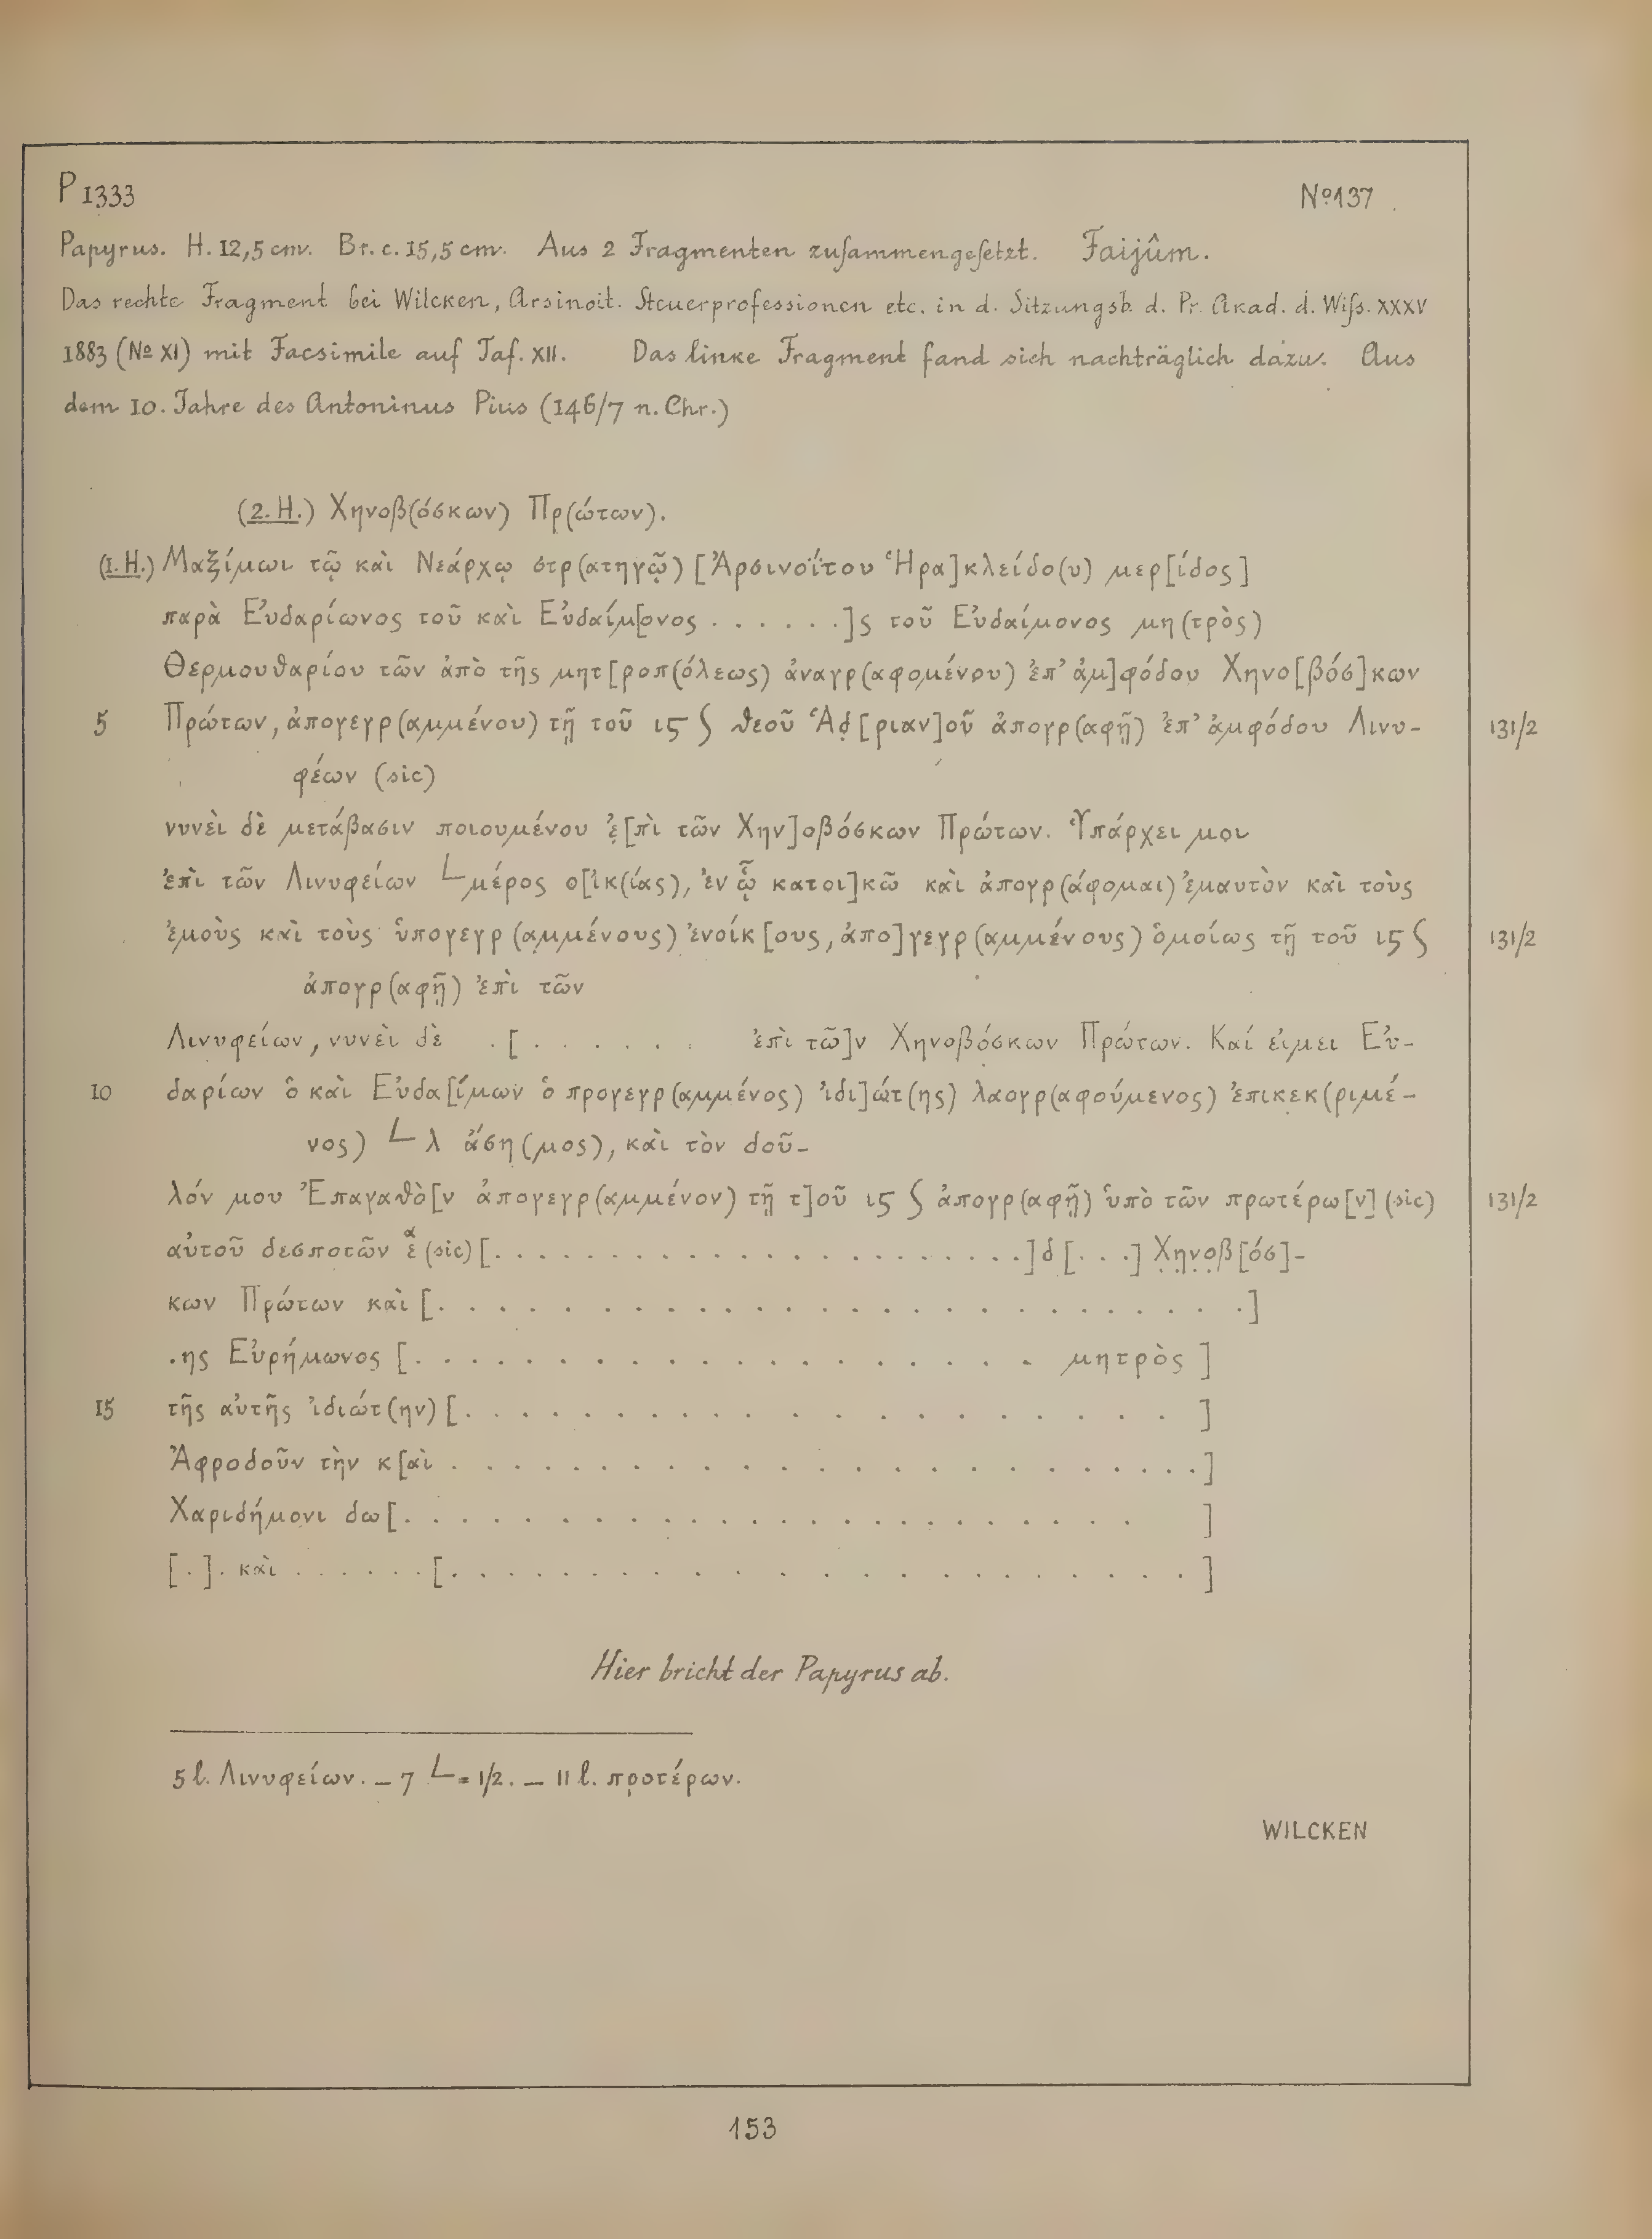 P 1333 Nº 137
Papyrus. H. 12,5 cm. Br. c. 15,5 cm. Aus 2 Fragmenten zuſammengeſetzt. Faijûm.
Das rechte Fragment bei Wilcken, Arsinoit. Steuerprofessionen etc. in d. Sitzungsb. d. Pr. Akad. d. Wiſs. XXXV
1883 (Nº XI) mit Facsimile auf Taf. XII. Das linke Fragment fand sich nachträglich dazu. Aus
dem 10. Jahre des Antoninus Pius (146/7 n. Chr.)
(2. H.) Χηνοβ(όσκων) Πρ(ώτων).
(1. H.) Μαξίμωι τῷ καὶ Νεάρχῳ στρ(ατηγῷ) [Ἀρσινοΐτου Ἡρα]κλείδο(υ) μερ[ίδος]
παρὰ Εὐδαρίωνος τοῦ καὶ Εὐδαίμ[ονος . . . . . .]ς τοῦ Εὐδαίμονος μη(τρὸς)
Θερμουθαρίου τῶν ἀπὸ τῆς μητ[ροπ(όλεως) ἀναγρ(αφομένου) ἐπ' ἀμ]φόδου Χηνο[βόσ]κων
5 Πρώτων, ἀπογεγρ(αμμένου) τῇ τοῦ ιϛ ʃ θεοῦ Ἁδ̣[ριαν]οῦ ἀπογρ(αφῇ) ἐπ' ἀμφόδου Λινυ- 131/2
φέων (sic)
νυνεὶ δὲ μετάβασιν ποιουμένου ἐ̣[πὶ τῶν Χην]οβόσκων Πρώτων. Ὑπάρχει μοι
ἐπὶ τῶν Λινυφείων ∟ μέρος ο[ἰκ(ίας), ἐν ᾧ κατοι]κῶ καὶ ἀπογρ(άφομαι) ἐμαυτὸν καὶ τοὺς
ἐμοὺς καὶ τοὺς ὑπογεγρ(αμμένους) ἐνοίκ[ους, ἀπο]γεγρ(αμμένους) ὁμοίως τῇ τοῦ ιϛ ʃ 131/2
ἀπογρ(αφῇ) ἐπὶ τῶν
Λινυφείων, νυνεὶ δὲ . [. . . . . . ἐπὶ τῶ]ν Χηνοβόσκων Πρώτων. Καί εἰμει Εὐ-
10 δαρίων ὁ καὶ Εὐδα[ίμων ὁ προγεγρ(αμμένος) ἰδι]ώτ(ης) λαογρ(αφούμενος) ἐπικεκ(ριμέ-
νος) ∟ λ ἄση(μος), καὶ τὸν δοῦ-
λόν μου Ἐπαγαθὸ[ν ἀπογεγρ(αμμένον) τῇ τ]οῦ ιϛ ʃ ἀπογρ(αφῇ) ὑπὸ τῶν πρωτέρω[ν] (sic) 131/2
αὐτοῦ δεσποτῶν ἑͣ (sic) [. . . . . . . . . . . . . . . . . . . .]δ[. . .] Χ̣η̣ν̣ο̣β[όσ]-
κων Πρώτων καὶ [. . . . . . . . . . . . . . . . . . . . . . . . . . .]
.ης Εὐρήμωνος [. . . . . . . . . . . . . . . . . . . . μητρὸς ]
15 τῆς αὐτῆς ἰδιώτ(ην) [. . . . . . . . . . . . . . . . . . . ]
Ἀφροδοῦν τὴν κ[αὶ . . . . . . . . . . . . . . . . . . . .]
Χαριδήμονι δω[. . . . . . . . . . . . . . . . . . . ]
[.]. καὶ . . . . . . [. . . . . . . . . . . . . . . . . .]
Hier bricht der Papyrus ab.
5 l. Λινυφείων. — 7 ∟ = 1/2. — 11 l. προτέρων.
WILCKEN
153